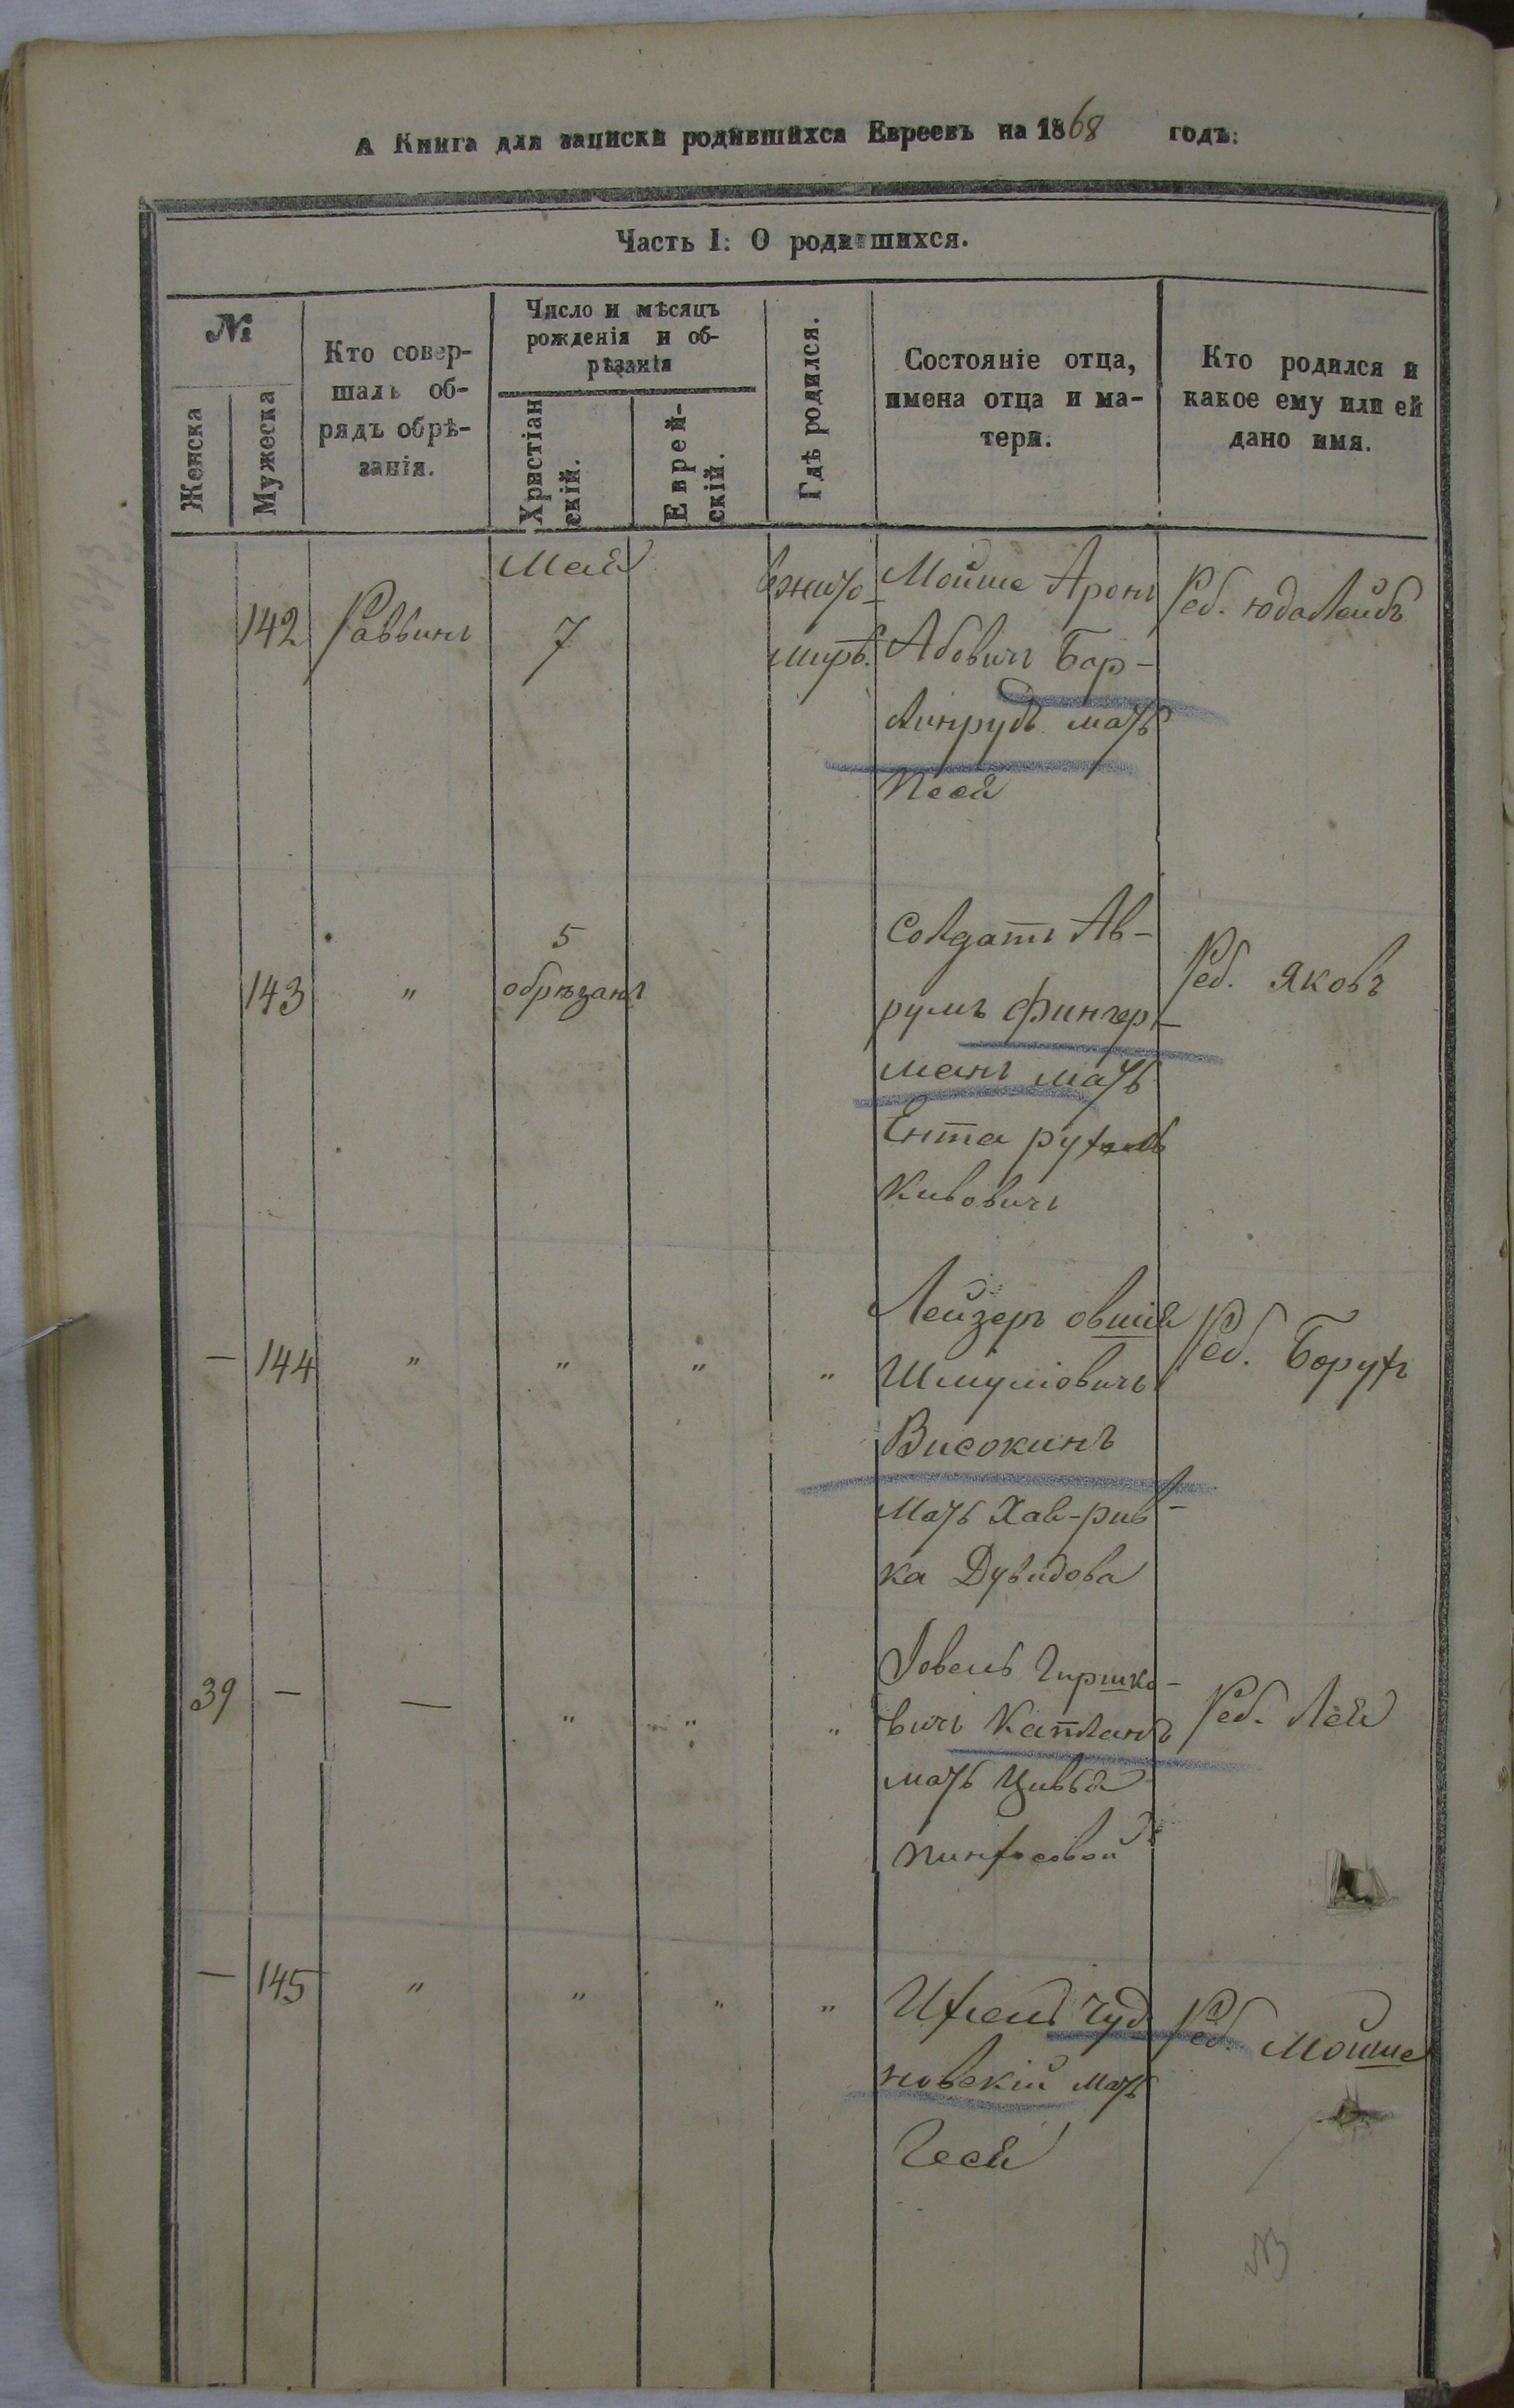 А Книга для записки родившихся Евреевъ на 1868 годъ:
Часть I: О родившихся.
№
Женска
Мужеска
Кто совер-
шалъ об-
рядъ обрѣ-
занія.
Число и мѣсяцъ
рожденія и об-
рѣзанія
Христіан
скій.
Еврей-
скій.
Гдѣ родился.
Состояніе отца,
имена отца и ма-
тери.
Кто родился и
какое ему или ей
дано имя.
Мая
142 Раввинъ 7
вжито-
миръ.
Мойше Аронъ
Абовичъ Бар-
линрудъ мать
Песя
Реб. юдалейбъ
143 " 5
обрѣзанъ
Солдатъ Ав-
румъ Фингер-
манъ мать
Ента рухль
Кивовичъ
Реб. Яковъ
— 144 " " " "
Лейзеръ овшія
Шмуліовичъ
Високинъ
Мать Хав-рив-
ка Дувидова
Реб. Борухъ
39 — — " " "
Іовель Гиршко-
вичъ Капланъ
мать Цивья
пинхосовой
Реб. Лея
— 145 " " " "
Ихель Чуд
новскій мать
Геся
Реб. Мойше